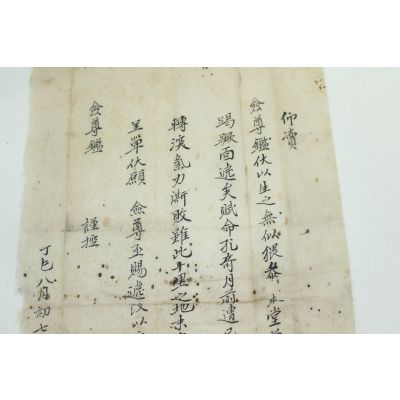 仰瀆
僉尊鑑伏以生之無似猥忝本堂
踢蹶面遽矣賦命孔奇月前遭
轉深氣力漸敗雖此千里之地未
呈單伏願 僉尊亟賜遞改以
僉尊鑑 謹控
丁巳八月初七